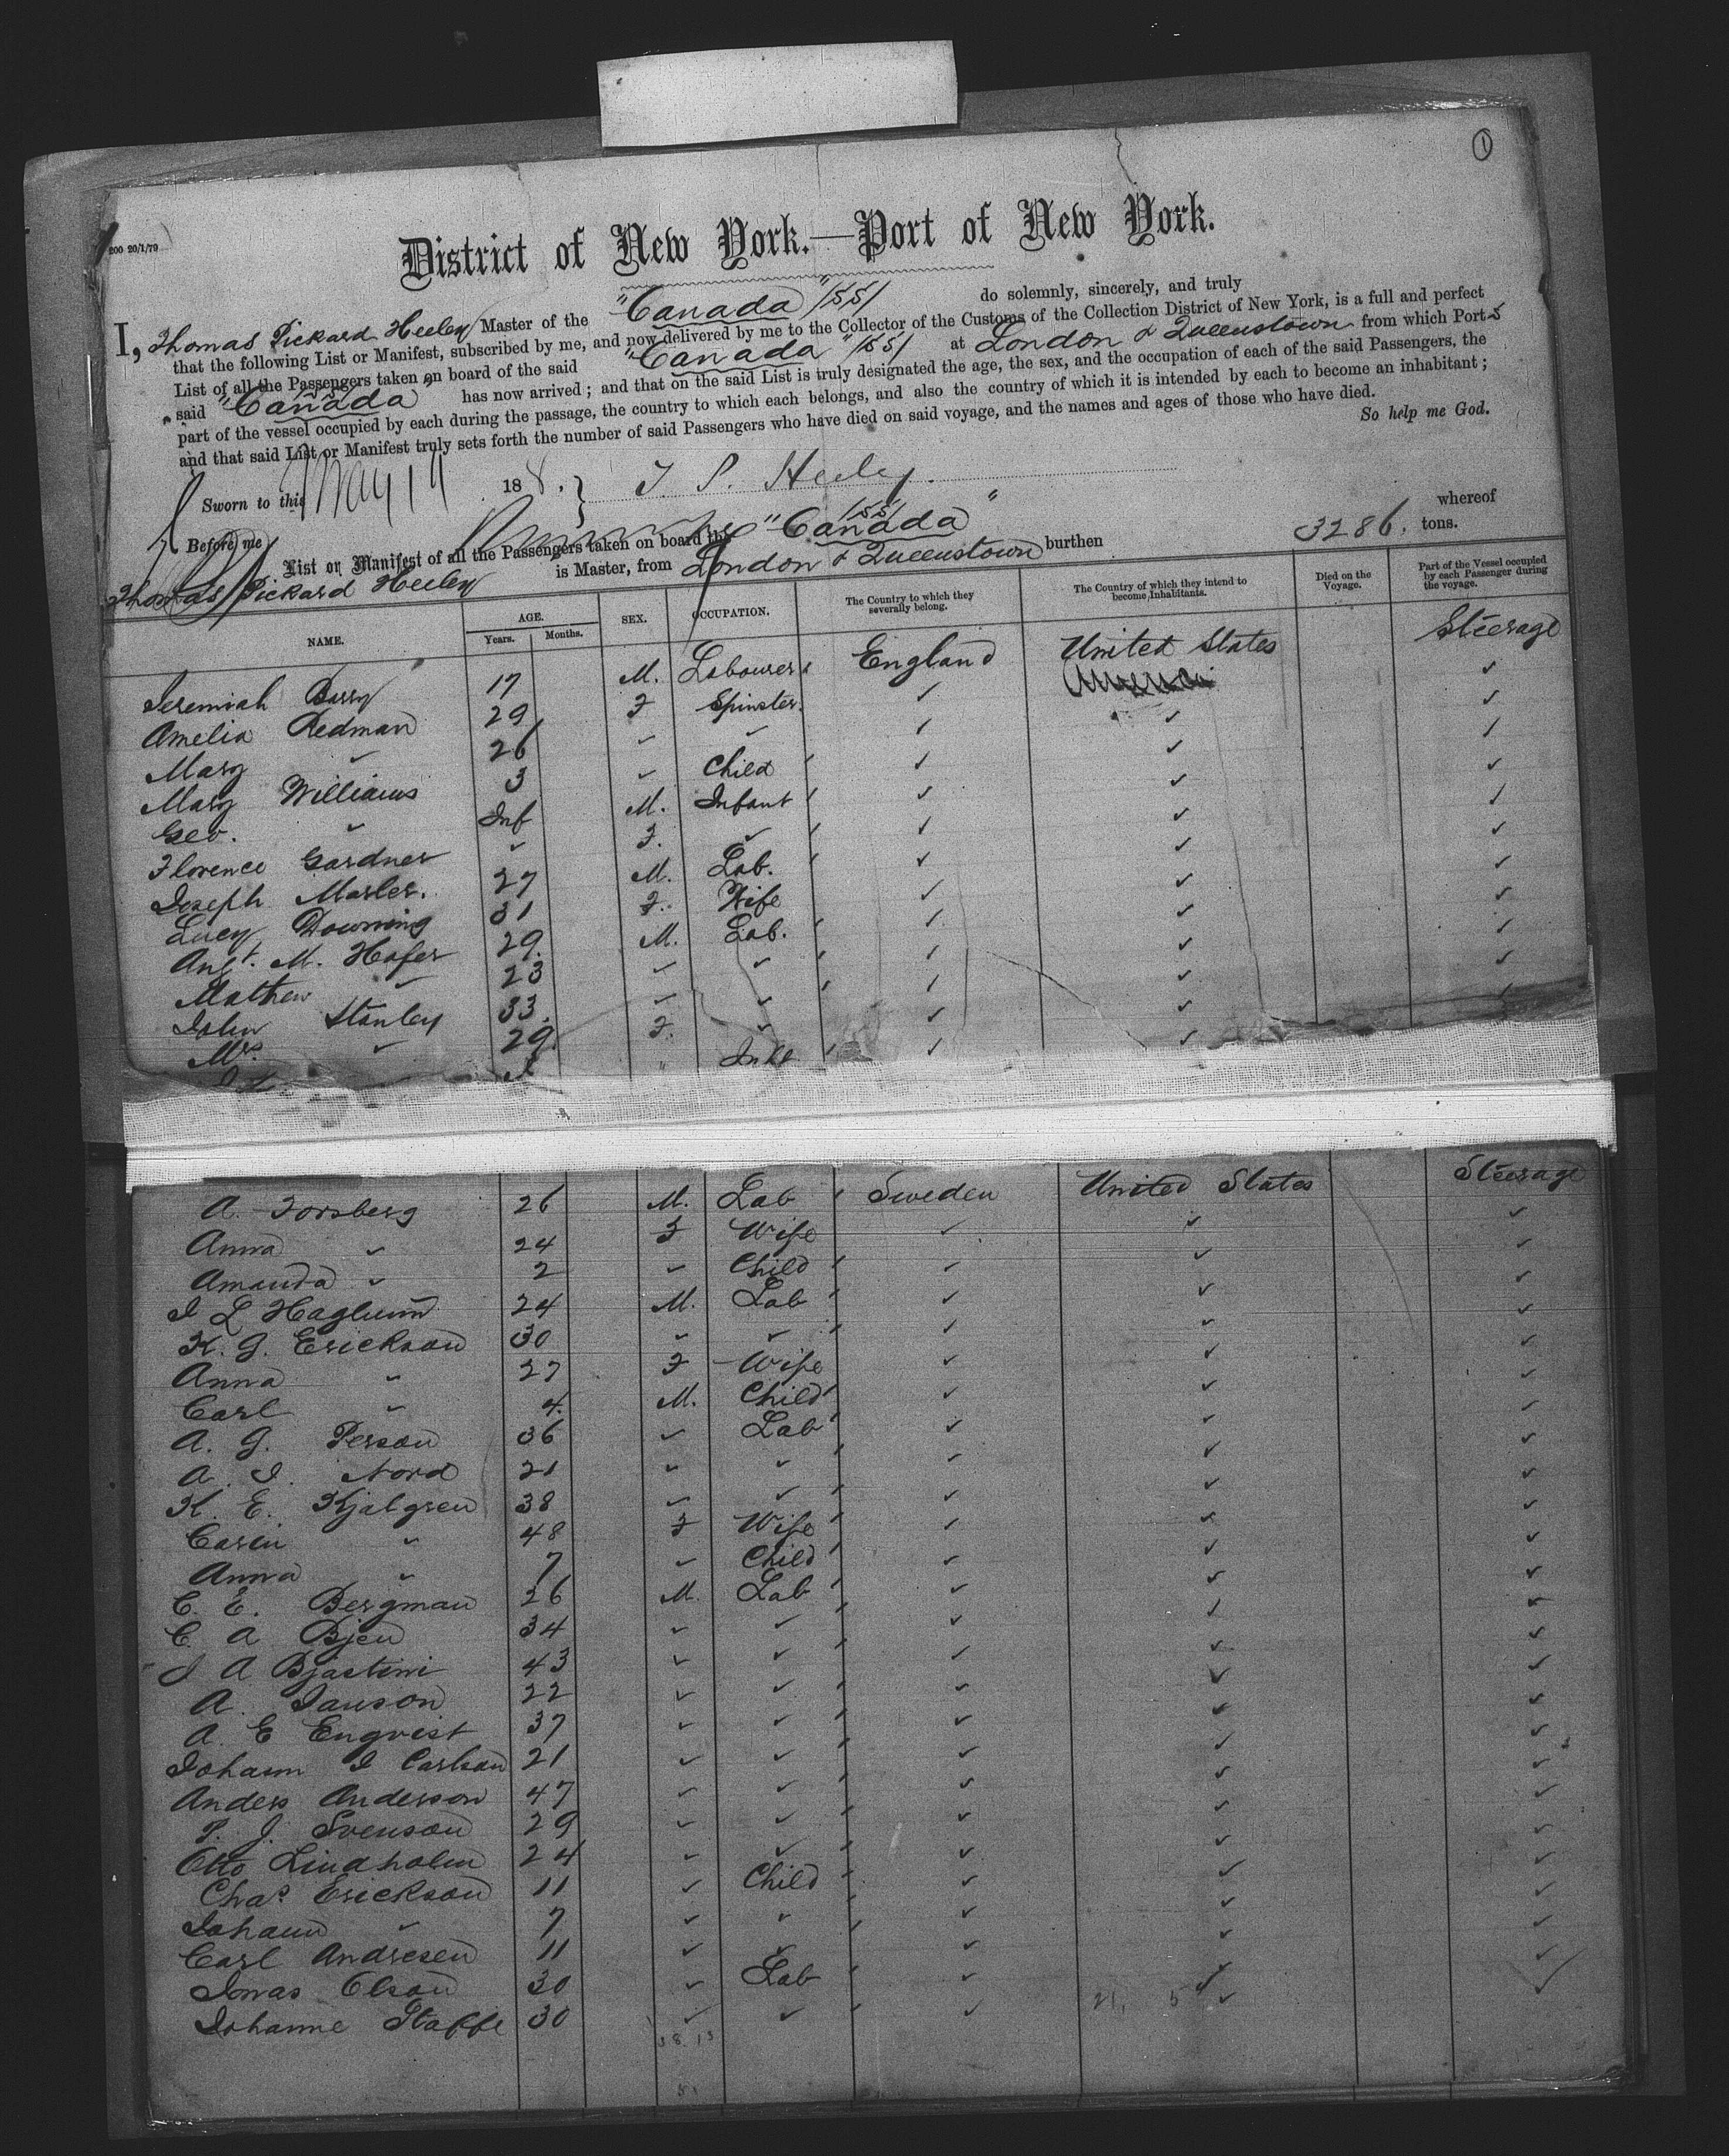 1
200 20/1/79
District of New York.—Port of New York.
I, Thomas Pickard Heeley Master of the "Canada" /SS/ do solemnly, sincerely, and truly
that the following List or Manifest, subscribed by me, and now delivered by me to the Collector of the Customs of the Collection District of New York, is a full and perfect
List of all the Passengers taken on board of the said "Canada" /SS/ at London & Queenstown from which Port s
said "Canada" /SS/ has now arrived; and that on the said List is truly designated the age, the sex, and the occupation of each of the said Passengers, the
part of the vessel occupied by each during the passage, the country to which each belongs, and also the country of which it is intended by each to become an inhabitant;
and that said List or Manifest truly sets forth the number of said Passengers who have died on said voyage, and the names and ages of those who have died.
So help me God.
Sworn to this May 14 188 . } T. P. Heeley.
Before me
List or Manifest of all the Passengers taken on board the "Canada" /SS/ whereof
Thomas Pickard Heeley is Master, from London & Queenstown burthen 3286. tons.
NAME. AGE. Years. Months. SEX. OCCUPATION. The Country to which they severally belong. The Country of which they intend to become Inhabitants. Died on the Voyage. Part of the Vessel occupied by each Passenger during the voyage.
Jeremiah Barry 17 M. Labourer England United States Steerage
Amelia Redman 29 F Spinster. ✓ ✓ ✓
Mary ✓ 26 ✓ ✓ ✓ ✓ ✓
Mary Williams 3 ✓ Child ✓ ✓ ✓
Geo. ✓ Inf M. Infant ✓ ✓ ✓
Florence Gardner ✓ F. ✓ ✓ ✓ ✓
Joseph Marler. 27 M. Lab. ✓ ✓ ✓
Lucy Downing 31 F. Wife ✓ ✓ ✓
Augt. M. Hofer 29. M. Lab. ✓ ✓ ✓
Mathew ✓ 23 ✓ ✓ ✓ ✓ ✓
John Stanley 33. ✓ ✓ ✓ ✓ ✓
Mrs. ✓ 29. F. ✓ ✓ ✓ ✓
" Inft ✓ ✓
A. Forsberg 26 M. Lab Sweden United States Steerage
Anna ✓ 24 F Wife ✓ ✓ ✓
Amanda ✓ 2 ✓ Child ✓ ✓ ✓
J L Haglund 24 M. Lab ✓ ✓ ✓
K. G. Erickson 30 ✓ ✓ ✓ ✓ ✓
Anna ✓ 27 F Wife ✓ ✓ ✓
Carl ✓ 4. M. Child ✓ ✓ ✓
A. G. Person 36 ✓ Lab ✓ ✓ ✓
A. J. Nord 21 ✓ ✓ ✓ ✓ ✓
K. E. Kjalgren 38 ✓ ✓ ✓ ✓ ✓
Carin ✓ 48 F Wife ✓ ✓ ✓
Anna ✓ 7 ✓ Child ✓ ✓ ✓
C. E. Bergman 26 M. Lab ✓ ✓ ✓
C. A Bjen 34 ✓ ✓ ✓ ✓ ✓
J A Bjastini 43 ✓ ✓ ✓ ✓ ✓
A. Janson 22 ✓ ✓ ✓ ✓ ✓
A. E Enqvist 37 ✓ ✓ ✓ ✓ ✓
Johann J Carlson 21 ✓ ✓ ✓ ✓ ✓
Anders Anderson 47 ✓ ✓ ✓ ✓ ✓
P. J. Svenson 29 ✓ ✓ ✓ ✓ ✓
Otto Lindholm 24 ✓ ✓ ✓ ✓ ✓
Chas. Erickson 11 ✓ Child ✓ ✓ ✓
Johann ✓ 7 ✓ ✓ ✓ ✓ ✓
Carl Andresen 11 ✓ ✓ ✓ ✓ ✓
Jonas Olson 30 ✓ Lab ✓ ✓ ✓
Johanne Staffe 30 ✓ ✓ ✓ ✓ ✓
38. 13